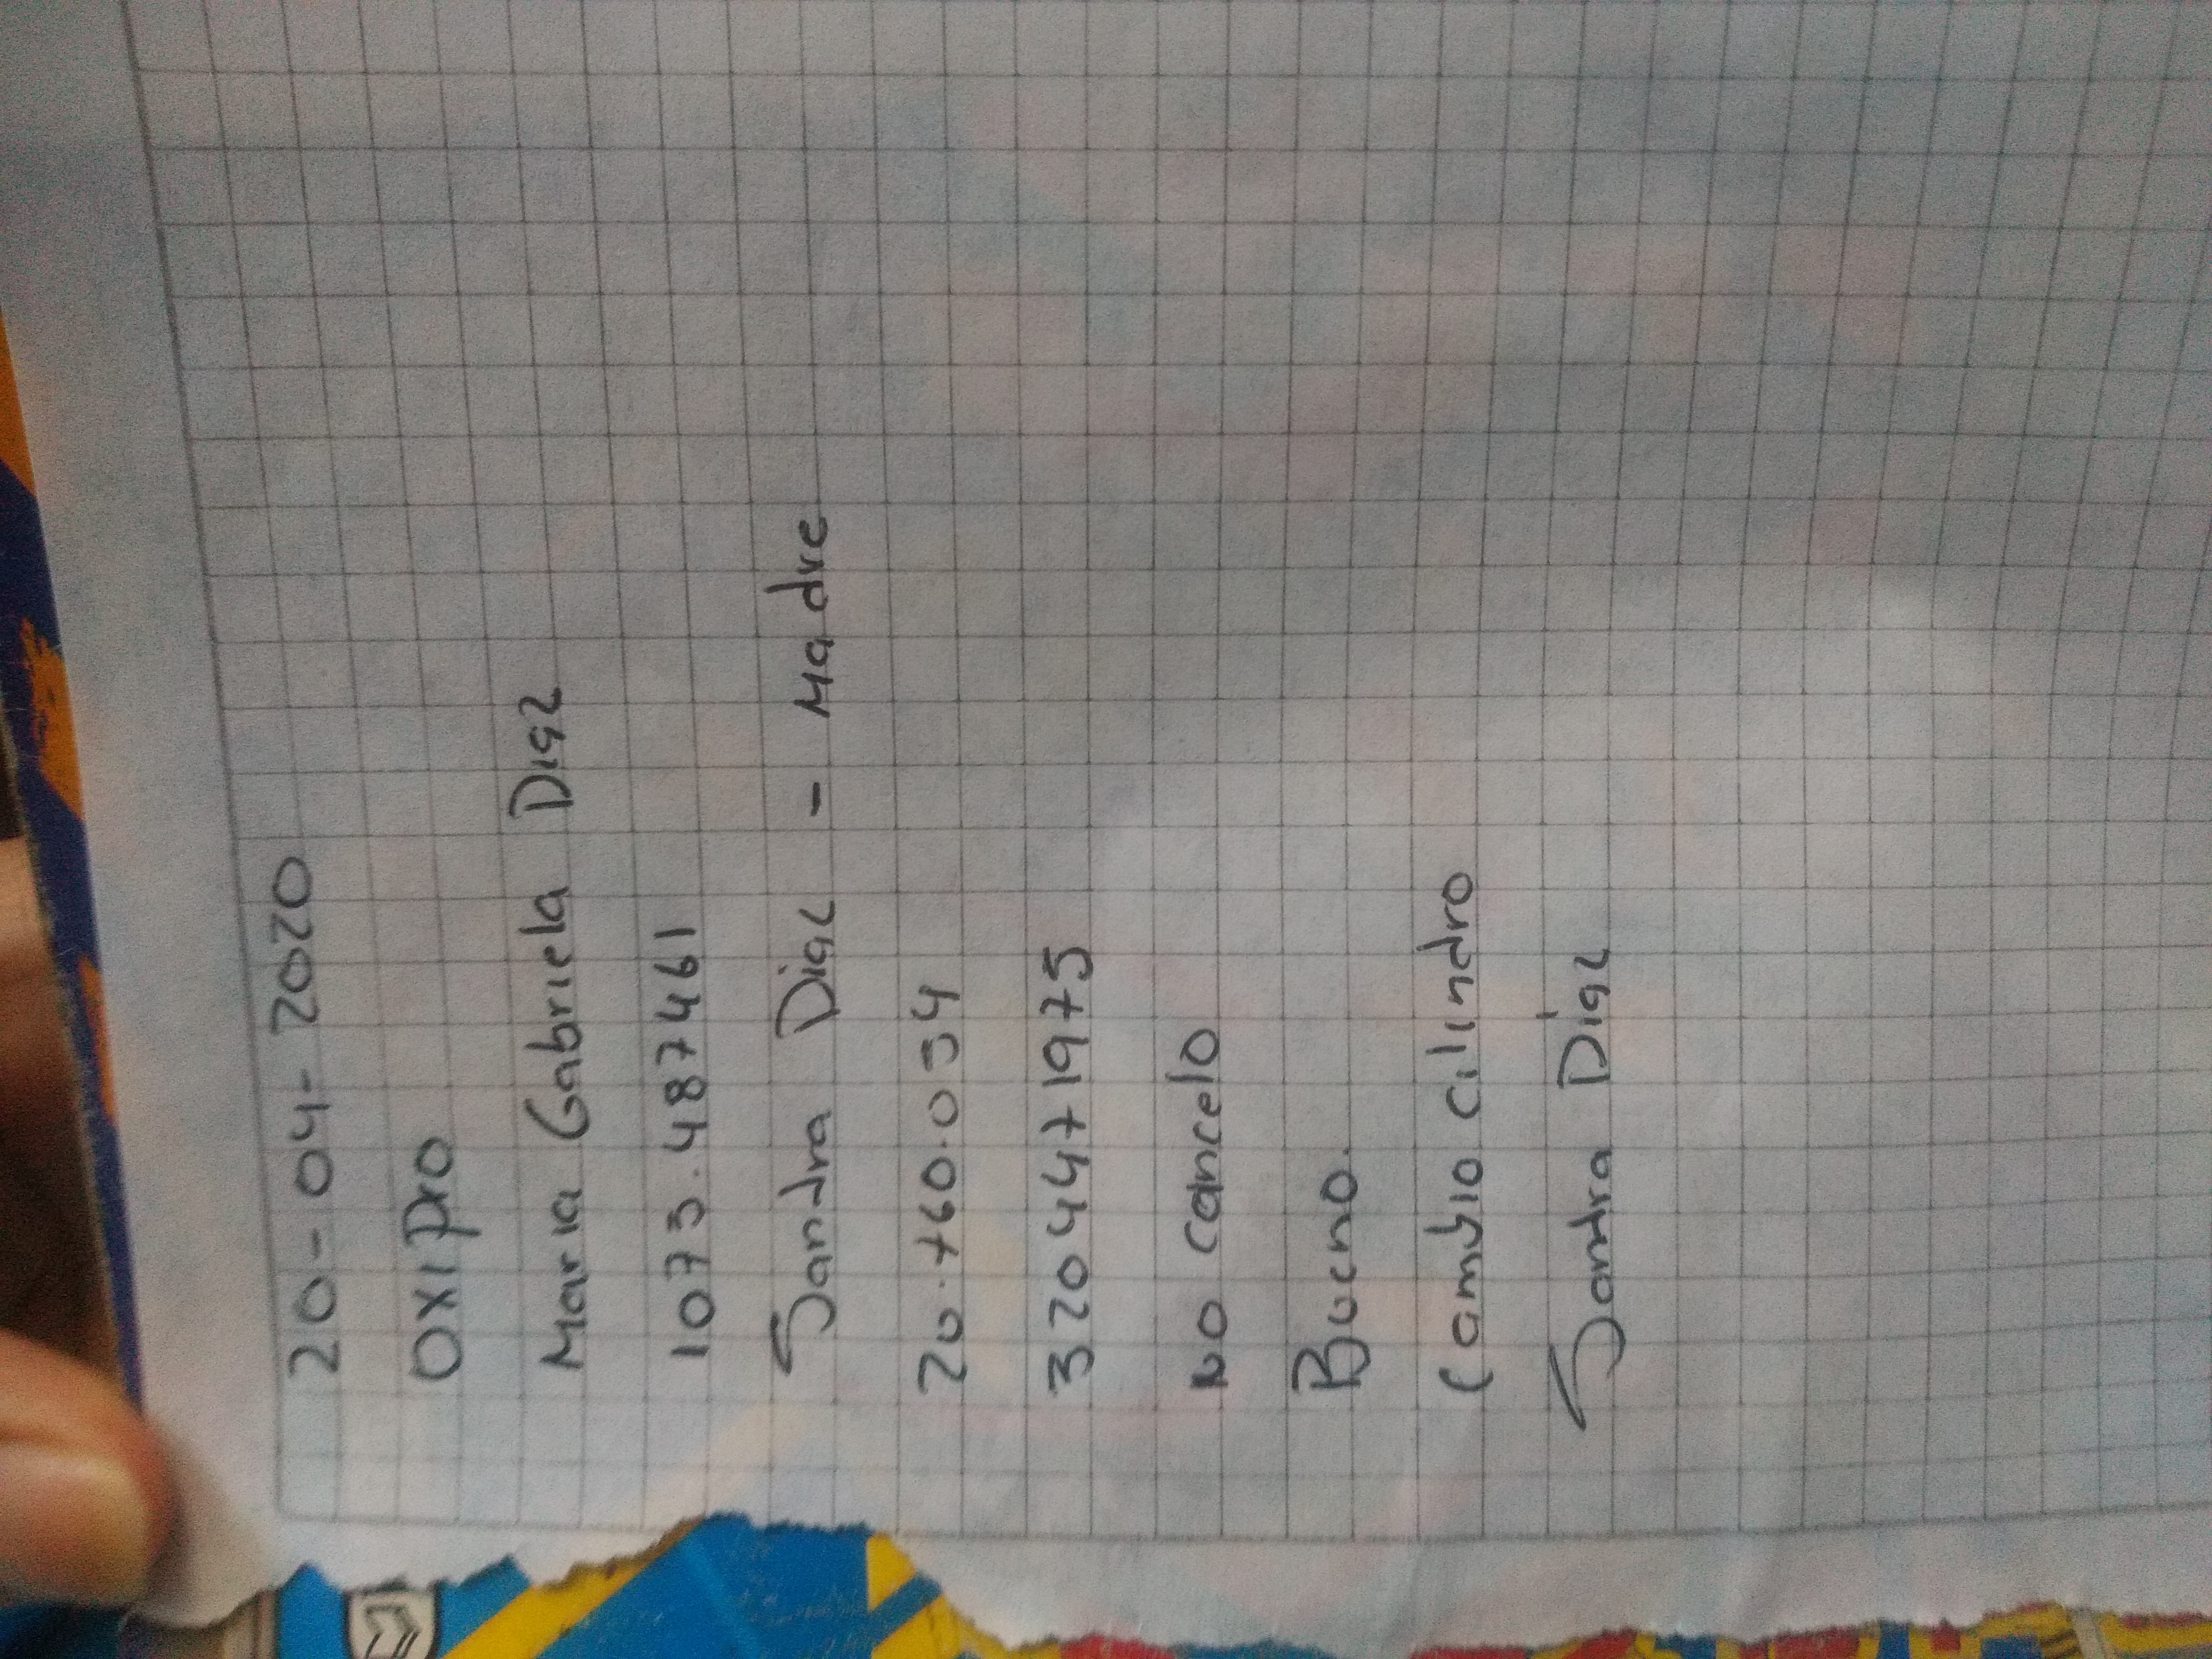 20-04-2020
OXIPro
Maria Gabriela Diaz
1073.487461
Sandra Diaz - Madre
20.760.034
3204471975
No cancelo
Bueno.
Cambio cilindro
Sandra Diaz